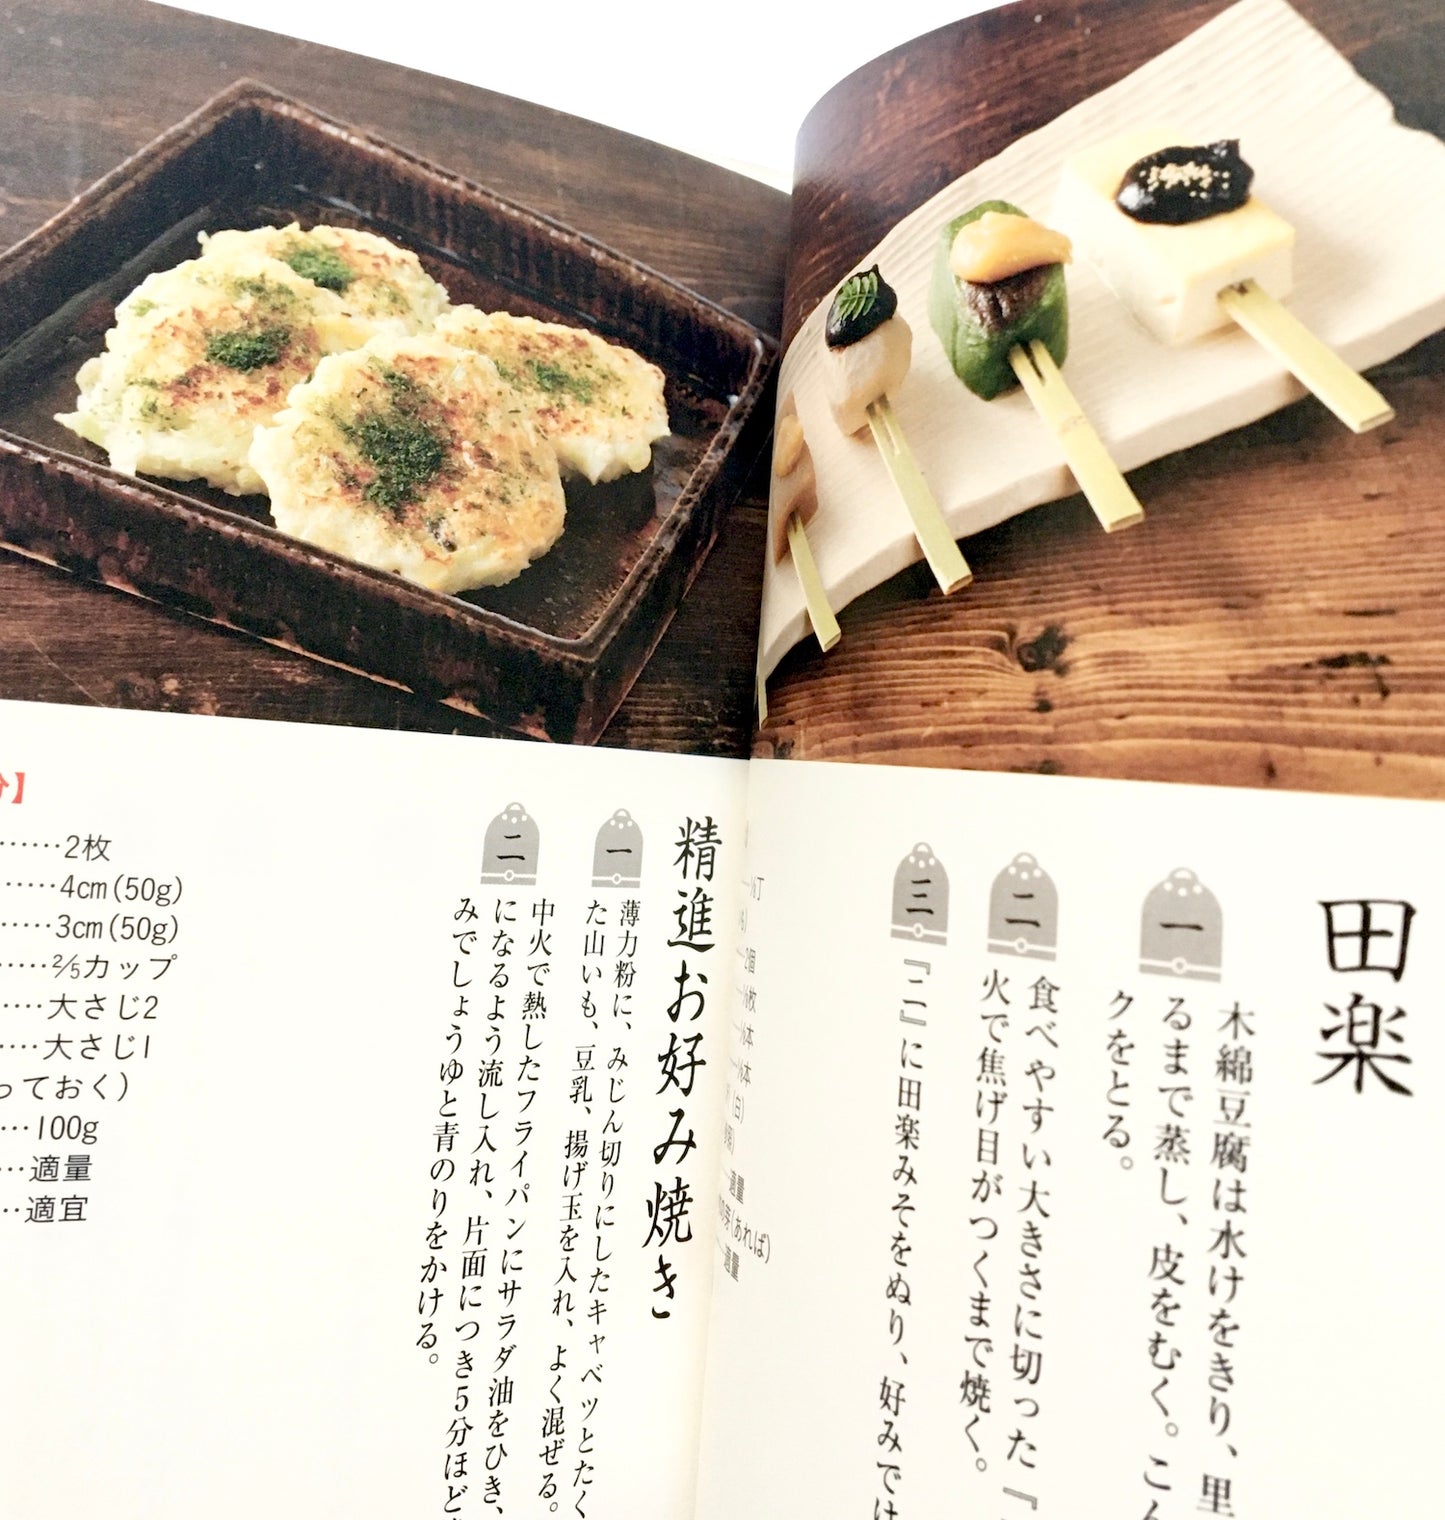 田楽
一
木綿豆腐は水けをきり、里
るまで蒸し、皮をむく。こん
クをとる。
二
食べやすい大きさに切った『
火で焦げ目がつくまで焼く。
三
『二』に田楽みそをぬり、好みでけ
丁
2個
枚
本
本
(白)
適量
芽(あれば)
適量
精進お好み焼き
一
薄力粉に、みじん切りにしたキャベツとたく
た山いも、豆乳、揚げ玉を入れ、よく混ぜる。
二
中火で熱したフライパンにサラダ油をひき、
になるよう流し入れ、片面につき5分ほど
みでしょうゆと青のりをかける。
分】
……2枚
……4cm(50g)
……3cm(50g)
……⅖カップ
……大さじ2
……大さじ1
っておく)
…100g
…適量
…適宜